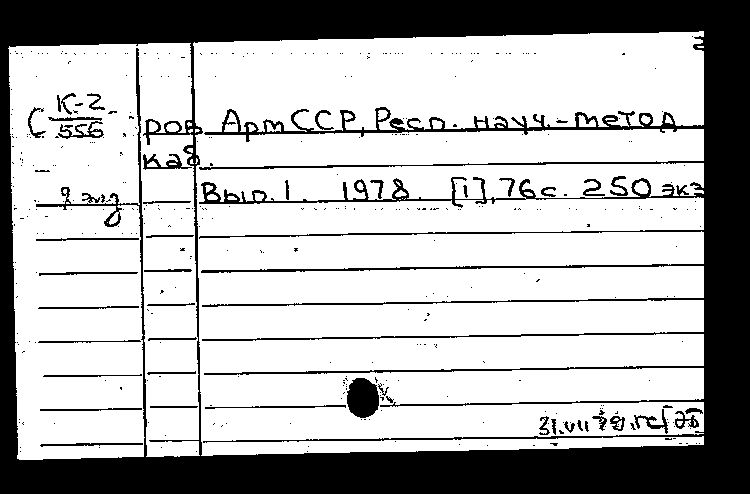 С К-2
556
ров АрмССР, Респ. науч.-метод
каб.
Вып. 1. 1978. [1], 76с. 250 экз
2 экз
31.VII